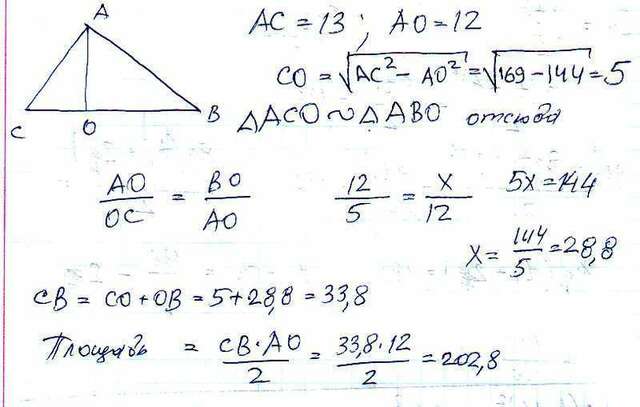 A
C
O
B
AC = 13 ; AO = 12
CO = √AC² - AO² = √169 - 144 = 5
△ACO ~ △ABO отсюда
AO/OC = BO/AO   12/5 = X/12   5X = 144
X = 144/5 = 28,8
CB = CO + OB = 5 + 28,8 = 33,8
Площадь = CB·AO/2 = 33,8·12/2 = 202,8